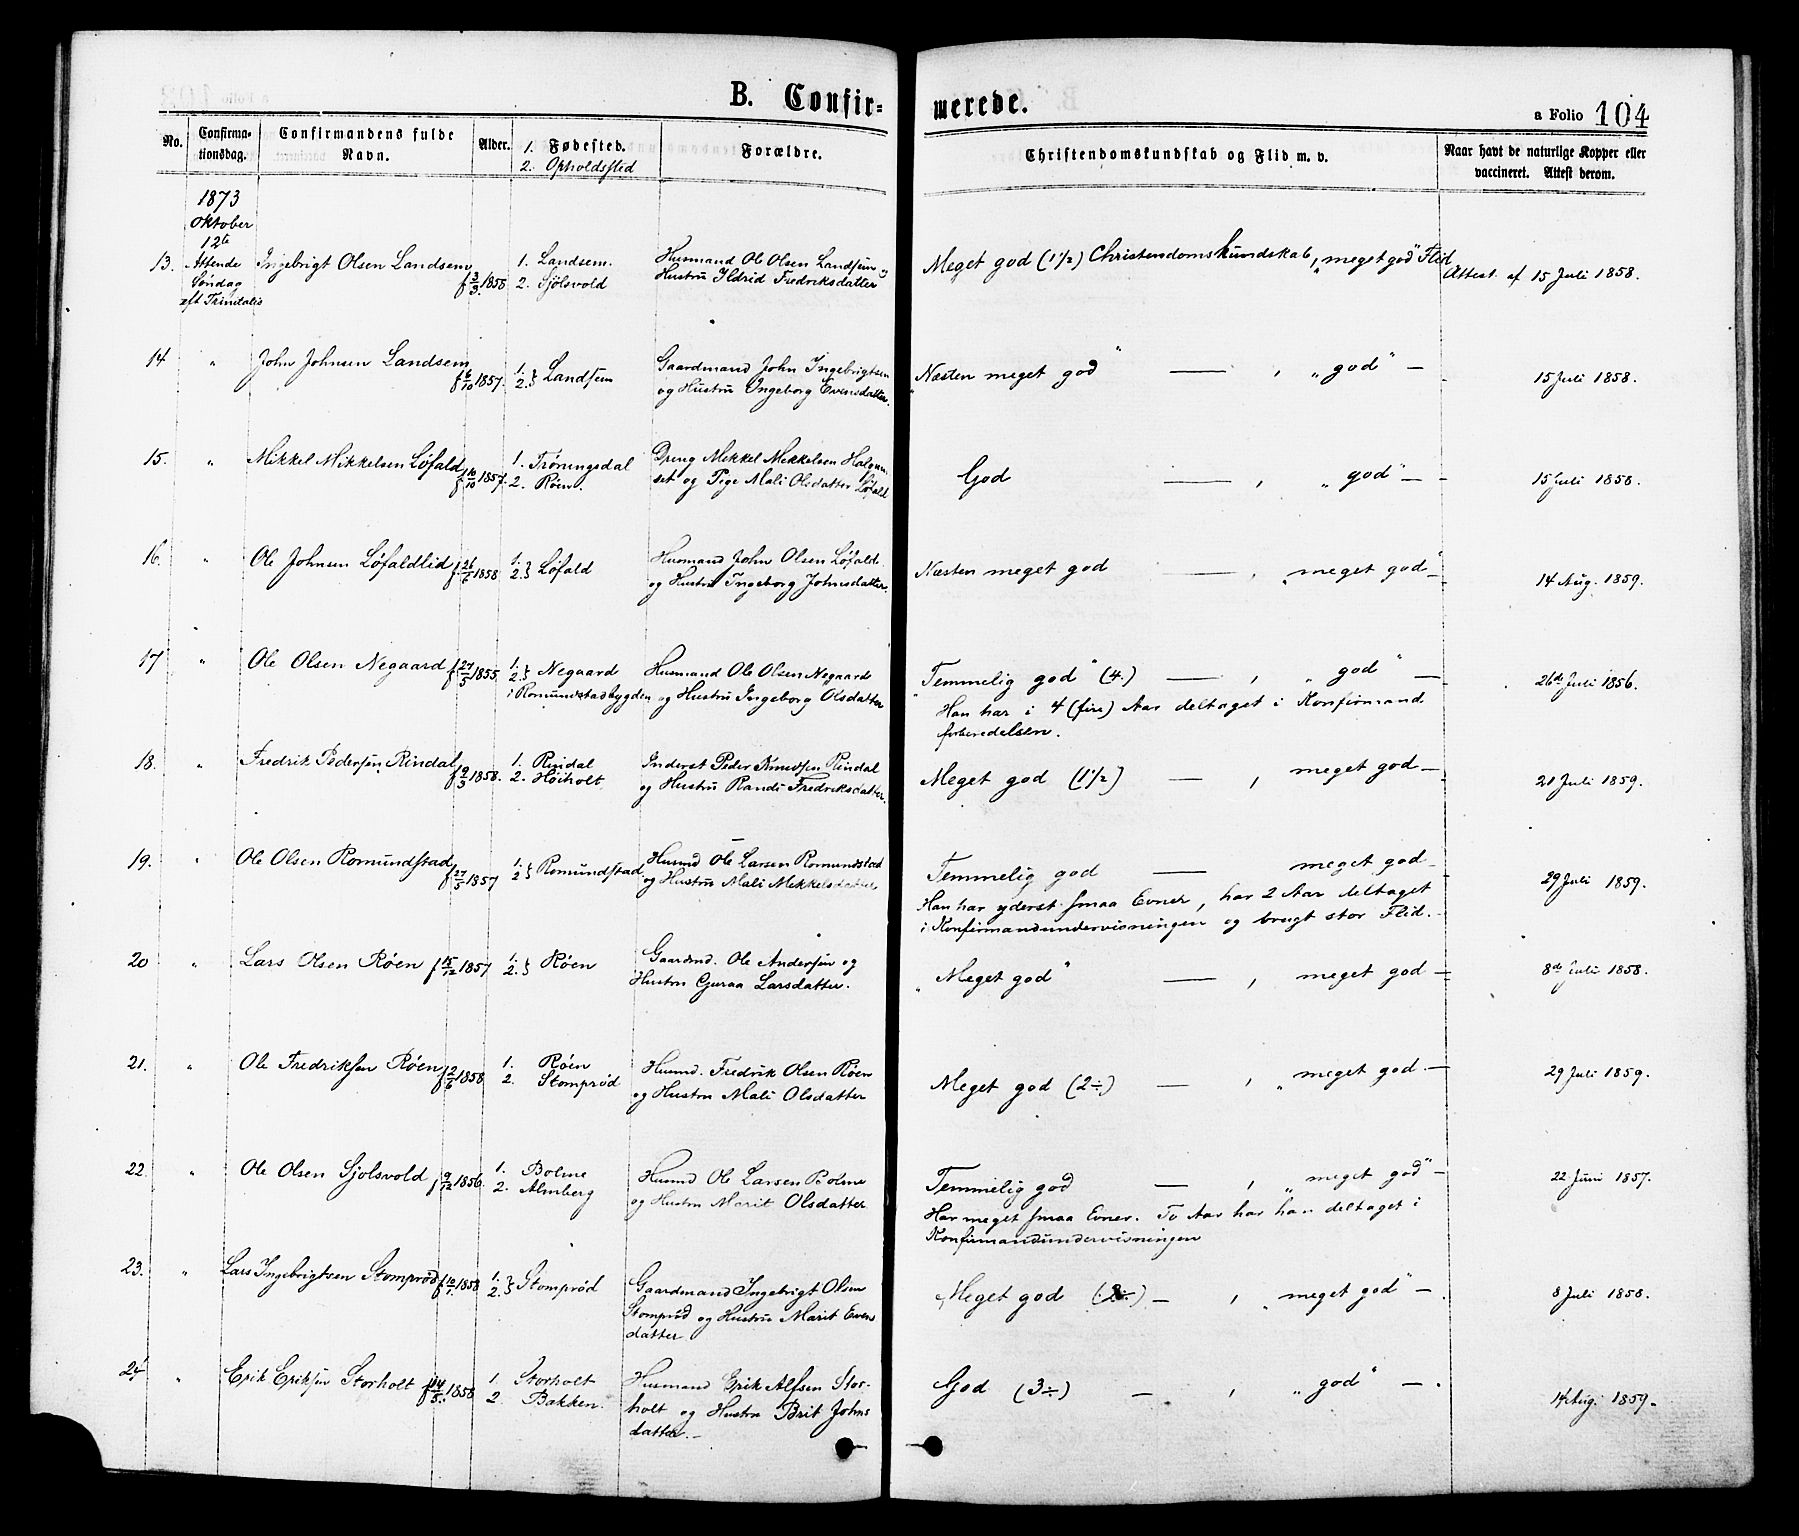 B. Confir-
merede.
a Folio 104
No.
Confirma-
tionsdag.
Confirmandens fulde
Navn.
Alder.
1. Fødested.
2. Opholdssted
Forældre.
Christendomskundskab og Flid m. v.
Naar havt de naturlige Kopper eller
vaccineret. Attest derom.
1873
Oktober
12te
Attende
Søndag
eft Trinitatis
13. Ingebrigt Olsen Landsem f 3/3 1858
1. Landsem.
2. Sjölsvold
Husmand Ole Olsen Landsem og
Hustru Ildrid Fredriksdatter
Meget god (1½) Christendomskundskab, „meget god" Flid
Attest af 15 Juli 1858.
14 " John Johnsen Landsem f 6/10 1857.
1.
2. } Landsem
Gaardmand John Ingebrigtsen
og Hustru Ingeborg Evensdatter.
„Næsten meget god" — , „god" —
15 Juli 1858.
15. " Mikkel Mikkelsen Løfald f 16/10 1857.
1. Trøningsdal
2. Røen.
Dreng Mikkel Mikkelsen Halgun-
set og Pige Mali Olsdatter Løfald
God — , „god" —
15 Juli 1858.
16. " Ole Johnsen Løfaldlid f. 26/5 1858
1.
2. } Løfald
Husmand John Olsen Løfald
og Hustru Ingeborg Johnsdatter.
Næsten meget god — , „meget god" —
14 Aug. 1859.
17 " Ole Olsen Negaard f 27/5 1855
1.
2. } Negaard
i Romundstadbygden
Husmand Ole Olsen Negaard
og Hustru Ingeborg Olsdatter
„Temmelig god" (4.) — , „god" —
Han har i 4 (fire) Aar deltaget i Konfirmand
forberedelsen.
26de Juli 1856.
18. " Fredrik Pedersen Rindal f 12/3 1858.
1. Rindal
2. Höiholt
Inderst Peder Knudsen Rindal
og Hustru Randi Fredriksdatter.
Meget god (1½) — , meget god —
21 Juli 1859.
19. " Ole Olsen Romundstad f 27/5 1857
1.
2 } Romundstad
Husmd Ole Larsen Romundstad
og Hustru Mali Mikkelsdatter
Temmelig god — meget god —
Han har yderst smaa Evner, har 2 Aar deltaget
i Konfirmandundervisningen og brugt stor Flid.
29 Juli 1859.
20 " Lars Olsen Røen f 15/12 1857
1.
2. } Røen
Gaardmd. Ole Andersen og
Hustru Guraa Larsdatter.
„Meget god" — , meget god —
8de Juli 1858.
21. " Ole Fredriksen Røen f 2/6 1858
1. Røen
2. Stomprød
Husmd. Fredrik Olsen Røen
og Hustru Mali Olsdatter
Meget god (2÷) — , „meget god. —
29 Juli 1859.
22. " Ole Olsen Sjolsvold f 9/12 1856.
1. Bolme
2. Almberg
Husmd Ole Larsen Bolme
og Hustru Marit Olsdatter
Temmelig god — , „meget god" —
Har meget smaa Evner. To Aar har han deltaget i
Konfirmandundervisningen
22 Juni 1857.
23. " Lars Ingebrigtsen Stomprød f 10/1 1858
1.
2. } Stomprød
Gaardmand Ingebrigt Olsen
Stomprød og Hustru Marit Evens
datter
Meget god (2÷) — , „meget god" —
8 Juli 1858.
24 " Erik Eriksen Storholt f 14/5 1858
1. Storholt
2. Bakken.
Husmand Erik Alfsen Stor-
holt og Hustru Brit Johns
datter. —
God (3÷) — , „god" —
14 Aug. 1859.